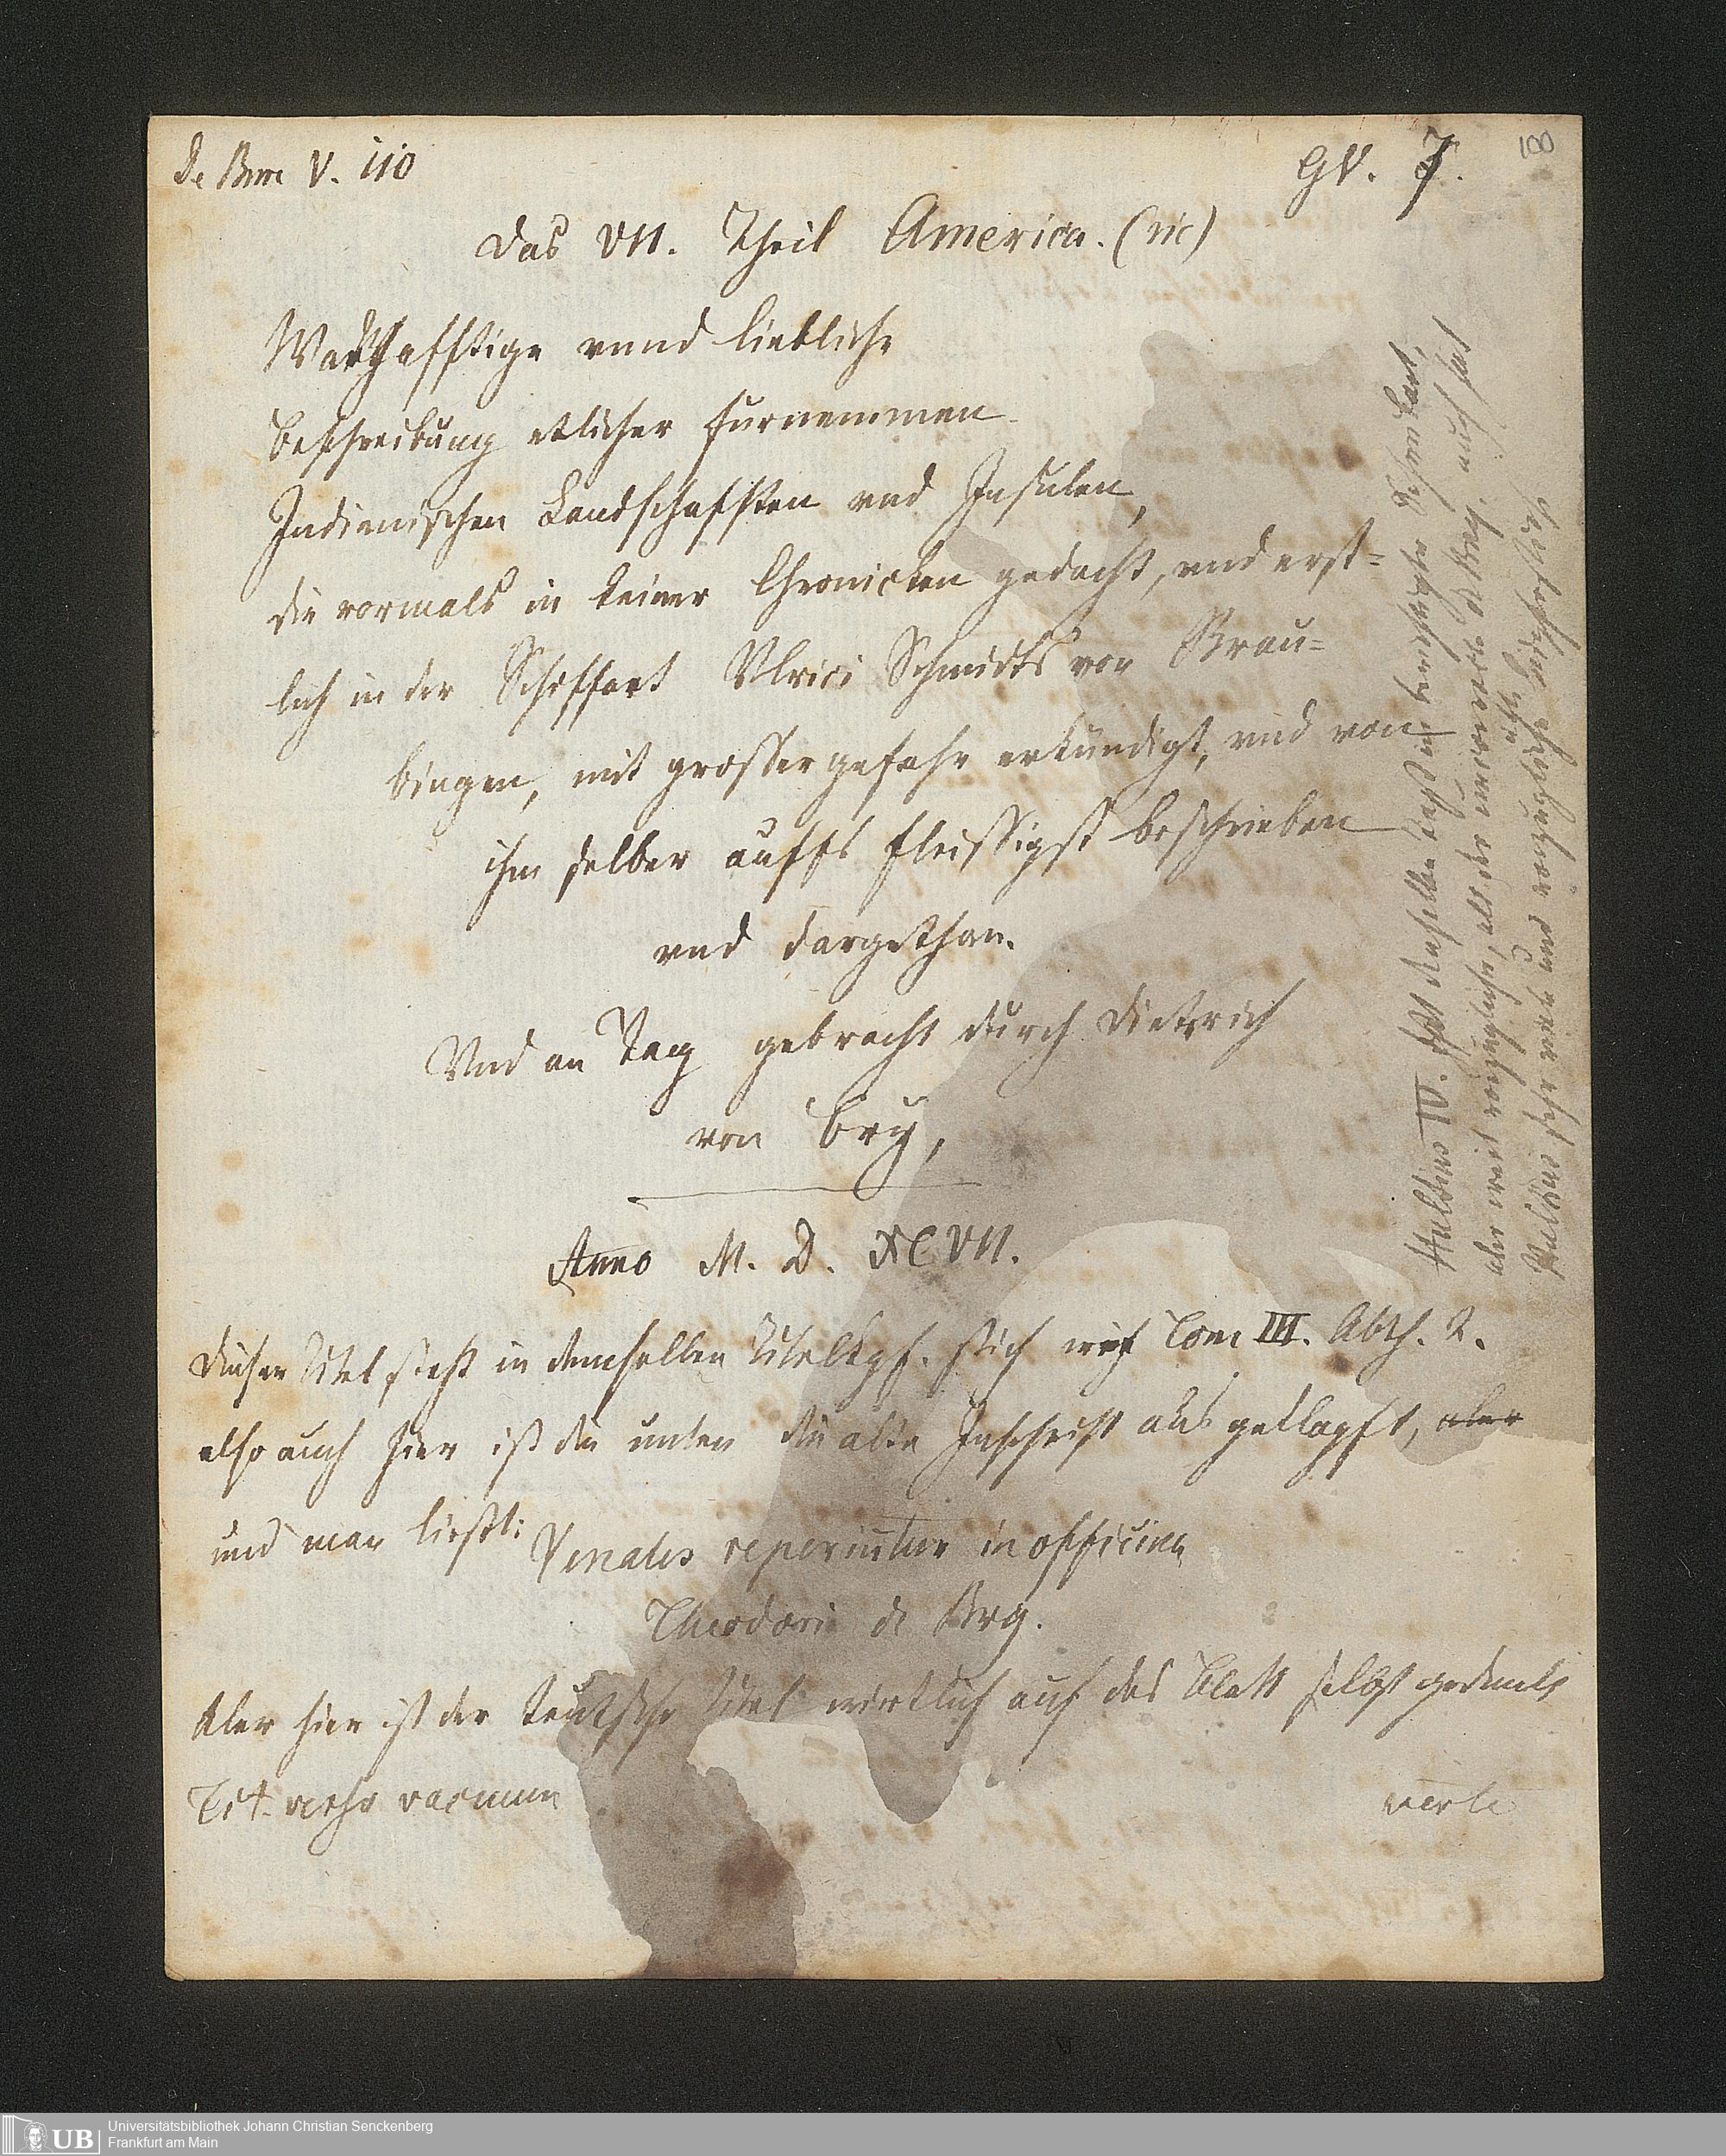 de Bure V. 110
GV. 7.
100
Das VII. Theil America. (sic)
Warhafftige vnnd liebliche
Beschreibung etlicher furnemmen
Indianischen Landschafften vnd Insulen,
die vormals in keiner Chronicken gedacht, vnd erst-
lich in der Schiffart Vlrici Schmidts von Strau-
bingen, mit grosser gefahr erkundigt, vnd von
ihm selber auffs fleissigst beschrieben
vnd dargethan.
Vnd an Tag gebracht durch Dietrich
von Bry,
Anno M. D. XCVII.
Dieser Titel steht in demselben Titelkpf. stich wie Tom III. Abth. 2.
also auch hier ist die unten die alte Inschrift ausgeklopft, aber
und man liest: Venales reperiuntur in officina
Theodori de Bry.
Aber hier ist der teutsche Titel wirklich auf das Blatt selbst gedruckt
Tit. verso vacuum
verte
Hulsius IV. hat denselben
aber weit vorzüglicher, als der de Bry. auch hat
Hulsius sehr viele und vorzügliche
Universitätsbibliothek Johann Christian Senckenberg
Frankfurt am Main
UB